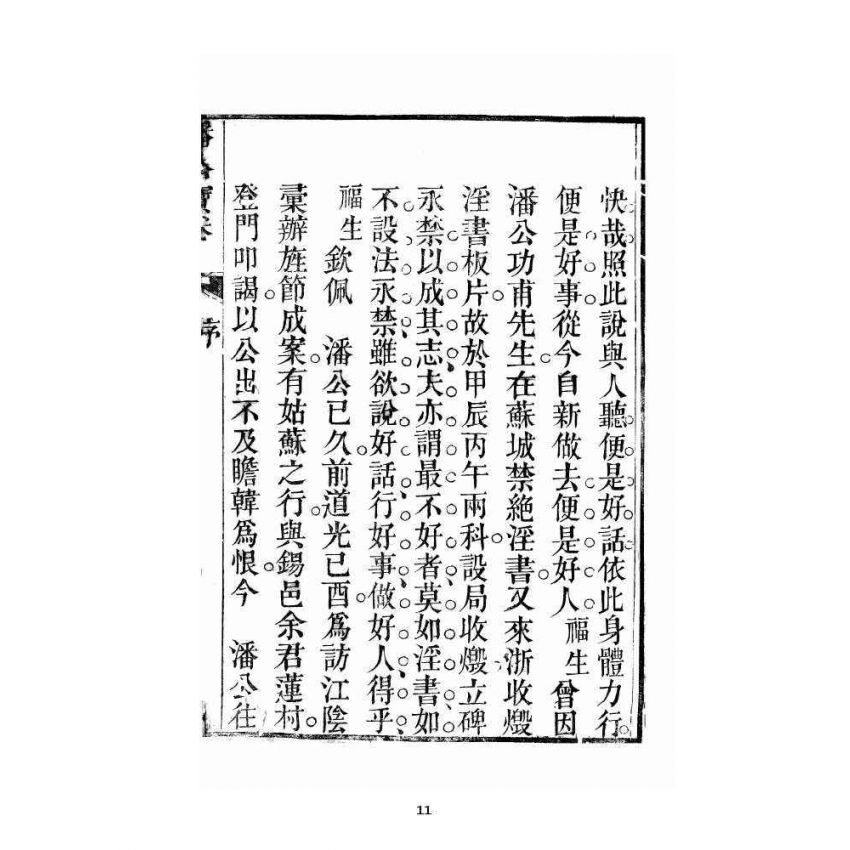 快哉照此說與人聽便是好話依此身體力行
便是好事從今自新做去便是好人福生曾因
潘公功甫先生在蘇城禁絕淫書又來浙收燬
淫書板片故於甲辰丙午兩科設局收燬立碑
永禁以成其志夫亦謂最不好者莫如淫書如
不設法永禁雖欲說好話行好事做好人得乎
福生欽佩 潘公已久前道光已酉爲訪江陰
彙辦旌節成案有姑蘇之行與錫邑余君蓮村
登門叩謁以公出不及瞻韓爲恨今 潘公往
序
11